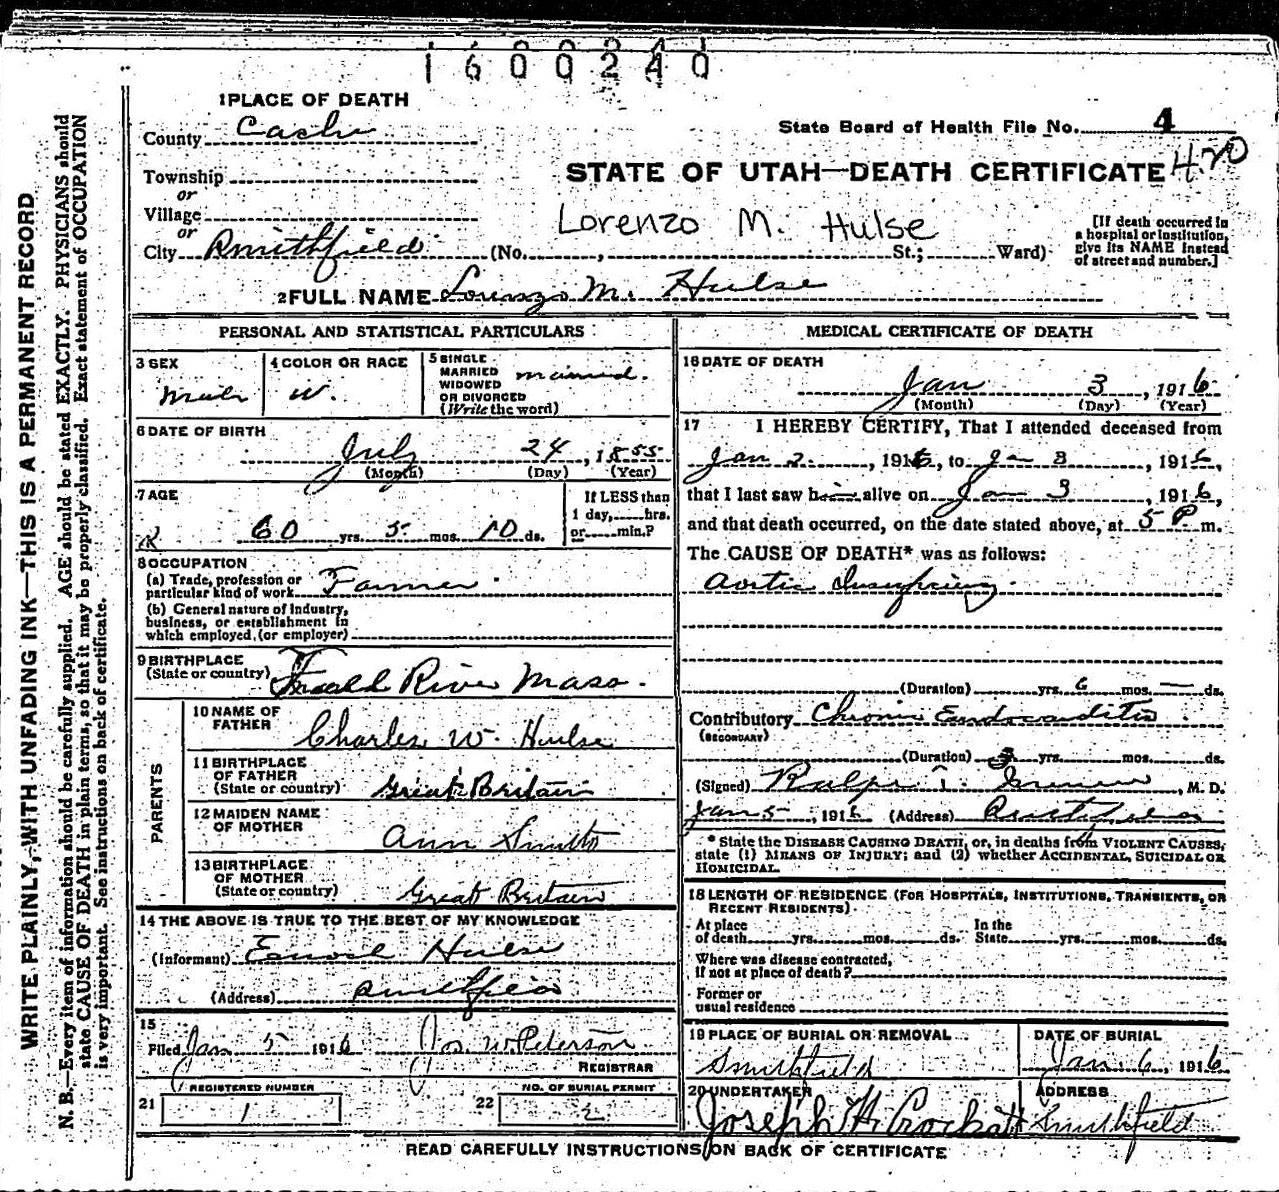 1600240
1 PLACE OF DEATH
County Cache
State Board of Health File No. 4
420
Township
or
STATE OF UTAH—DEATH CERTIFICATE
Village
or
Lorenzo M. Hulse
City Smithfield (No. , St.; Ward)
[If death occurred in a hospital or institution, give its NAME instead of street and number.]
2 FULL NAME Lorenzo M. Hulse
PERSONAL AND STATISTICAL PARTICULARS
3 SEX
Male
4 COLOR OR RACE
W.
5 SINGLE
MARRIED
WIDOWED
OR DIVORCED
(Write the word)
married.
6 DATE OF BIRTH
July 24, 1855
(Month) (Day) (Year)
7 AGE
60 yrs. 5 mos. 10 ds.
If LESS than
1 day, hrs.
or min.?
8 OCCUPATION
(a) Trade, profession or
particular kind of work Farmer
(b) General nature of industry,
business, or establishment in
which employed, (or employer)
9 BIRTHPLACE
(State or country) River Mass.
PARENTS
10 NAME OF
FATHER Charles W. Hulse
11 BIRTHPLACE
OF FATHER
(State or country) Great Britain
12 MAIDEN NAME
OF MOTHER Ann
13 BIRTHPLACE
OF MOTHER
(State or country) Great Britain
14 THE ABOVE IS TRUE TO THE BEST OF MY KNOWLEDGE
(Informant) Hulse
(Address) Smithfield
15
Filed Jan 5 1916 Jos. W. Peterson
REGISTRAR
REGISTERED NUMBER
21 1
NO. OF BURIAL PERMIT
22 2
MEDICAL CERTIFICATE OF DEATH
16 DATE OF DEATH
Jan 3, 1916
(Month) (Day) (Year)
17 I HEREBY CERTIFY, That I attended deceased from
Jan 2, 1916, to Jan 3, 1916,
that I last saw him alive on Jan 3, 1916,
and that death occurred, on the date stated above, at 5 P m.
The CAUSE OF DEATH* was as follows:
Aortic
(Duration) yrs. 6 mos. — ds.
Contributory Chronic Endocarditis
(SECONDARY)
(Duration) 3 yrs. mos. ds.
(Signed) Ralph T. , M. D.
Jan 5, 1916 (Address) Smithfield
* State the DISEASE CAUSING DEATH, or, in deaths from VIOLENT CAUSES,
state (1) MEANS OF INJURY; and (2) whether ACCIDENTAL, SUICIDAL OR
HOMICIDAL.
18 LENGTH OF RESIDENCE (FOR HOSPITALS, INSTITUTIONS, TRANSIENTS, OR
RECENT RESIDENTS).
At place
of death yrs. mos. ds.
In the
State yrs. mos. ds.
Where was disease contracted,
if not at place of death?
Former or
usual residence
19 PLACE OF BURIAL OR REMOVAL
Smithfield
DATE OF BURIAL
Jan. 6, 1916
20 UNDERTAKER
Joseph H. Crockett
ADDRESS
Smithfield
READ CAREFULLY INSTRUCTIONS ON BACK OF CERTIFICATE
WRITE PLAINLY, WITH UNFADING INK—THIS IS A PERMANENT RECORD
N. B.—Every item of information should be carefully supplied. AGE should be stated EXACTLY. PHYSICIANS should
state CAUSE OF DEATH in plain terms, so that it may be properly classified. Exact statement of OCCUPATION
is very important. See instructions on back of certificate.